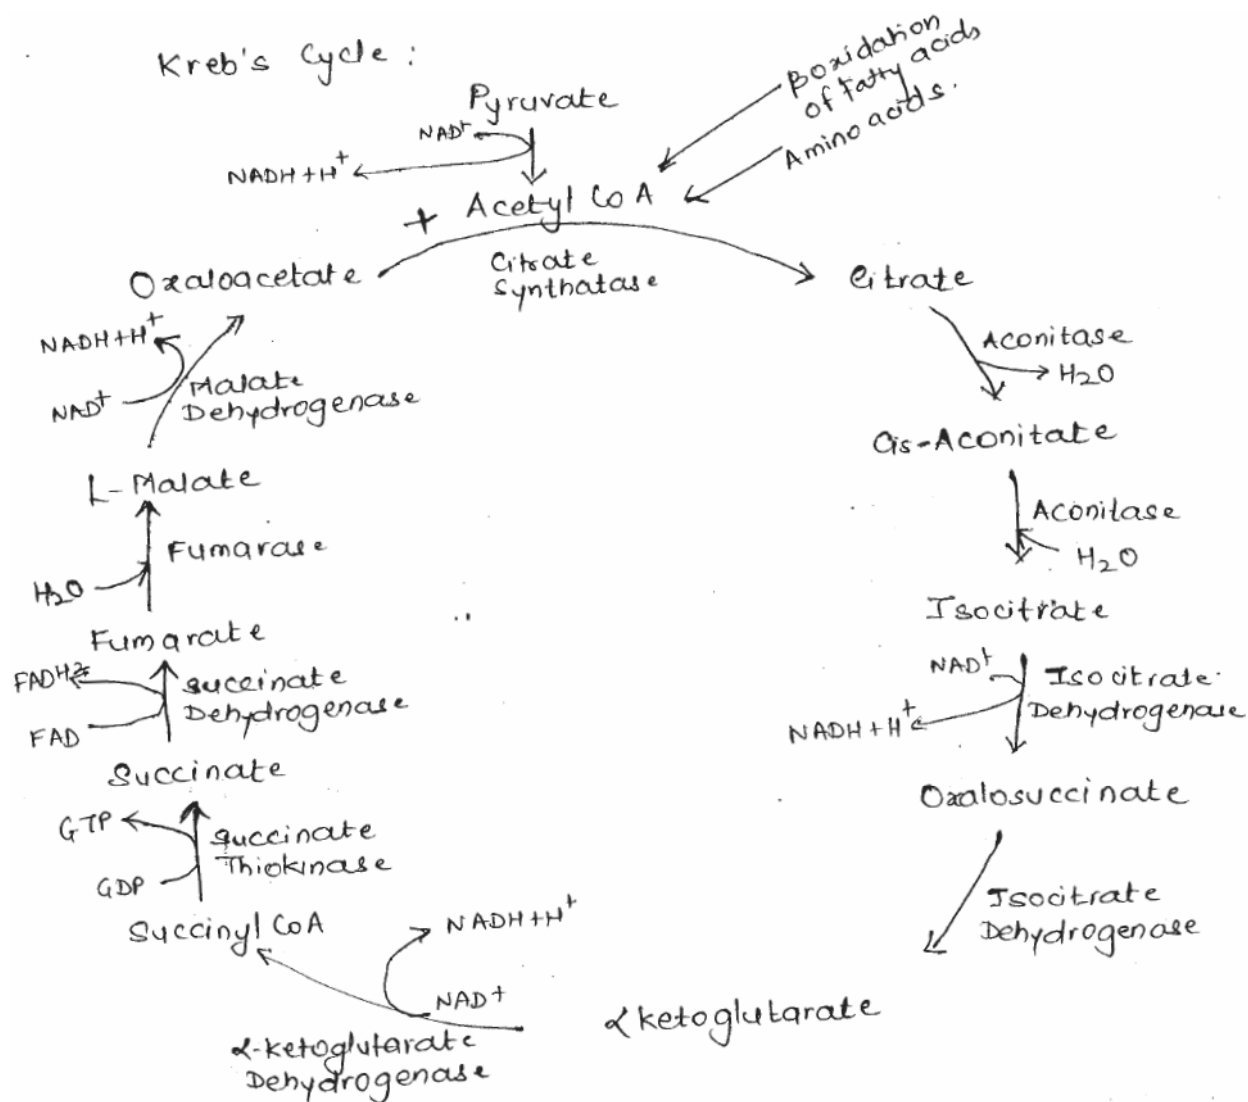 Kreb's Cycle :
βoxidation
of Fatty acids
Amino acids.
Pyruvate
NAD+
NADH+H+
+ Acetyl CoA
Citrate
Synthatase
Oxaloacetate
Citrate
Aconitase
H2O
Cis-Aconitate
Aconitase
H2O
Isocitrate
NAD+
NADH+H+
Isocitrate
Dehydrogenase
Oxalosuccinate
Isocitrate
Dehydrogenase
αketoglutarate
NAD+
NADH+H+
α-ketoglutarate
Dehydrogenase
Succinyl CoA
GDP
GTP
Succinate
Thiokinase
Succinate
FAD
FADH2
Succinate
Dehydrogenase
Fumarate
H2O
Fumarase
L-Malate
NAD+
NADH+H+
Malate
Dehydrogenase